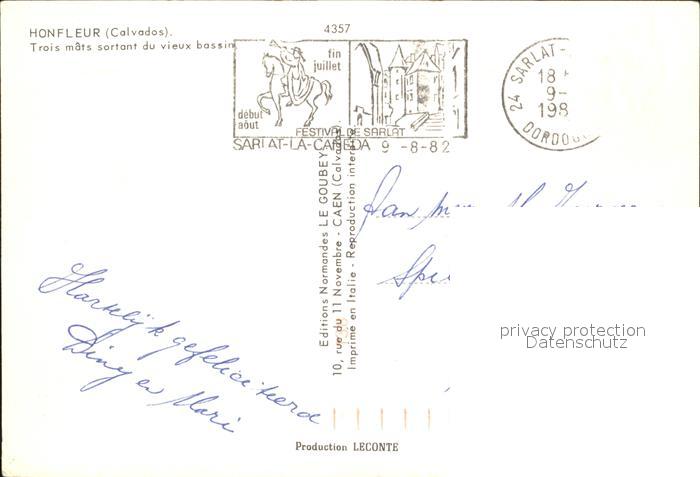 HONFLEUR (Calvados).
Trois mâts sortant du vieux bassin
4357
fin
juillet
début
août
FESTIVAL DE SARLAT
SARLAT-LA-CANEDA 9 -8-82
24 SARLAT-
18
9-
198
DORDOG
Editions Normandes LE GOUBEY
10, rue du 11 Novembre - CAEN (Calvados).
Imprimé en Italie - Reproduction interdite
Hartelijk gefeliciteerd
Diny en Mari
privacy protection
Datenschutz
Production LECONTE